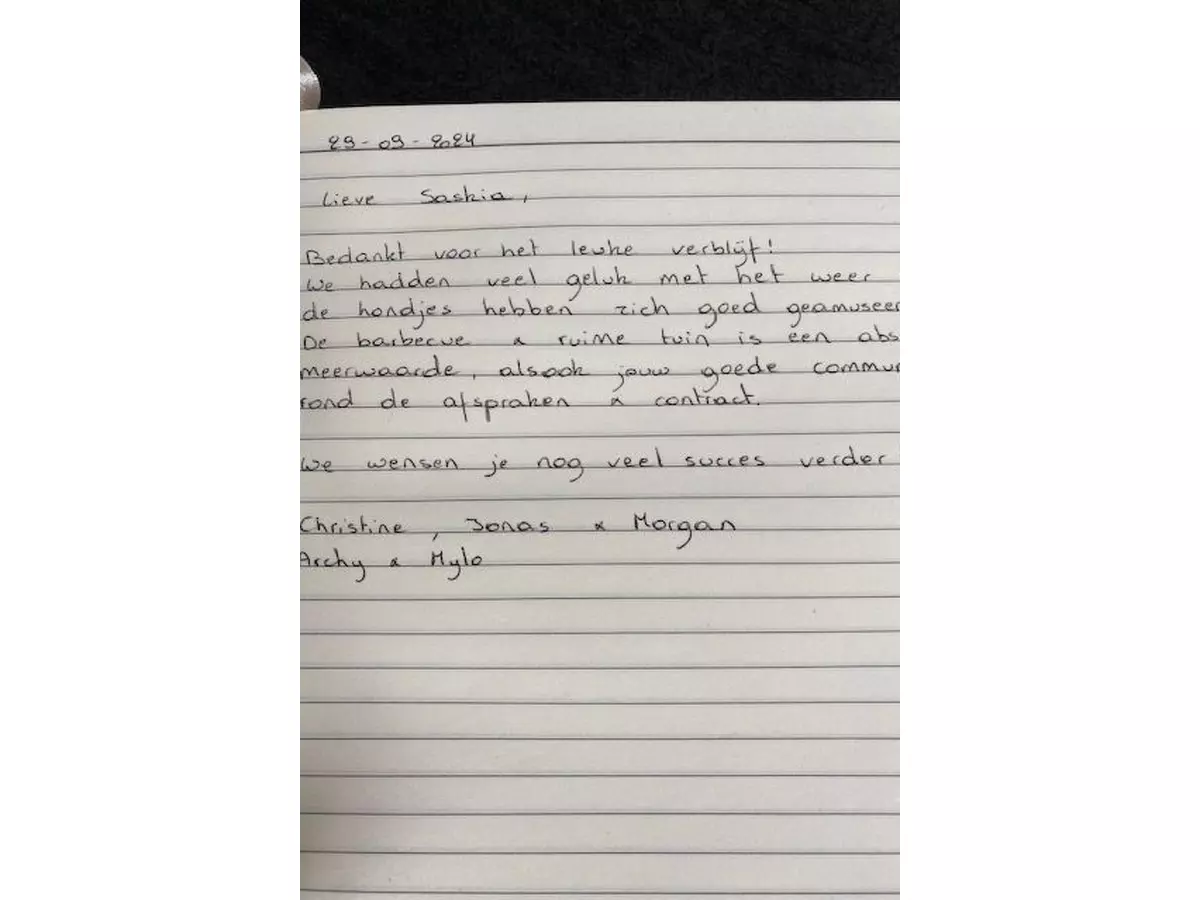 29-09-2024
Lieve Saskia,
Bedankt voor het leuke verblijf!
We hadden veel geluk met het weer
de hondjes hebben zich goed geamuseer
De barbecue & ruime tuin is een abs
meerwaarde, alsook jouw goede commu
rond de afspraken & contract.
We wensen je nog veel succes verder
Christine, Jonas & Morgan
Archy & Mylo